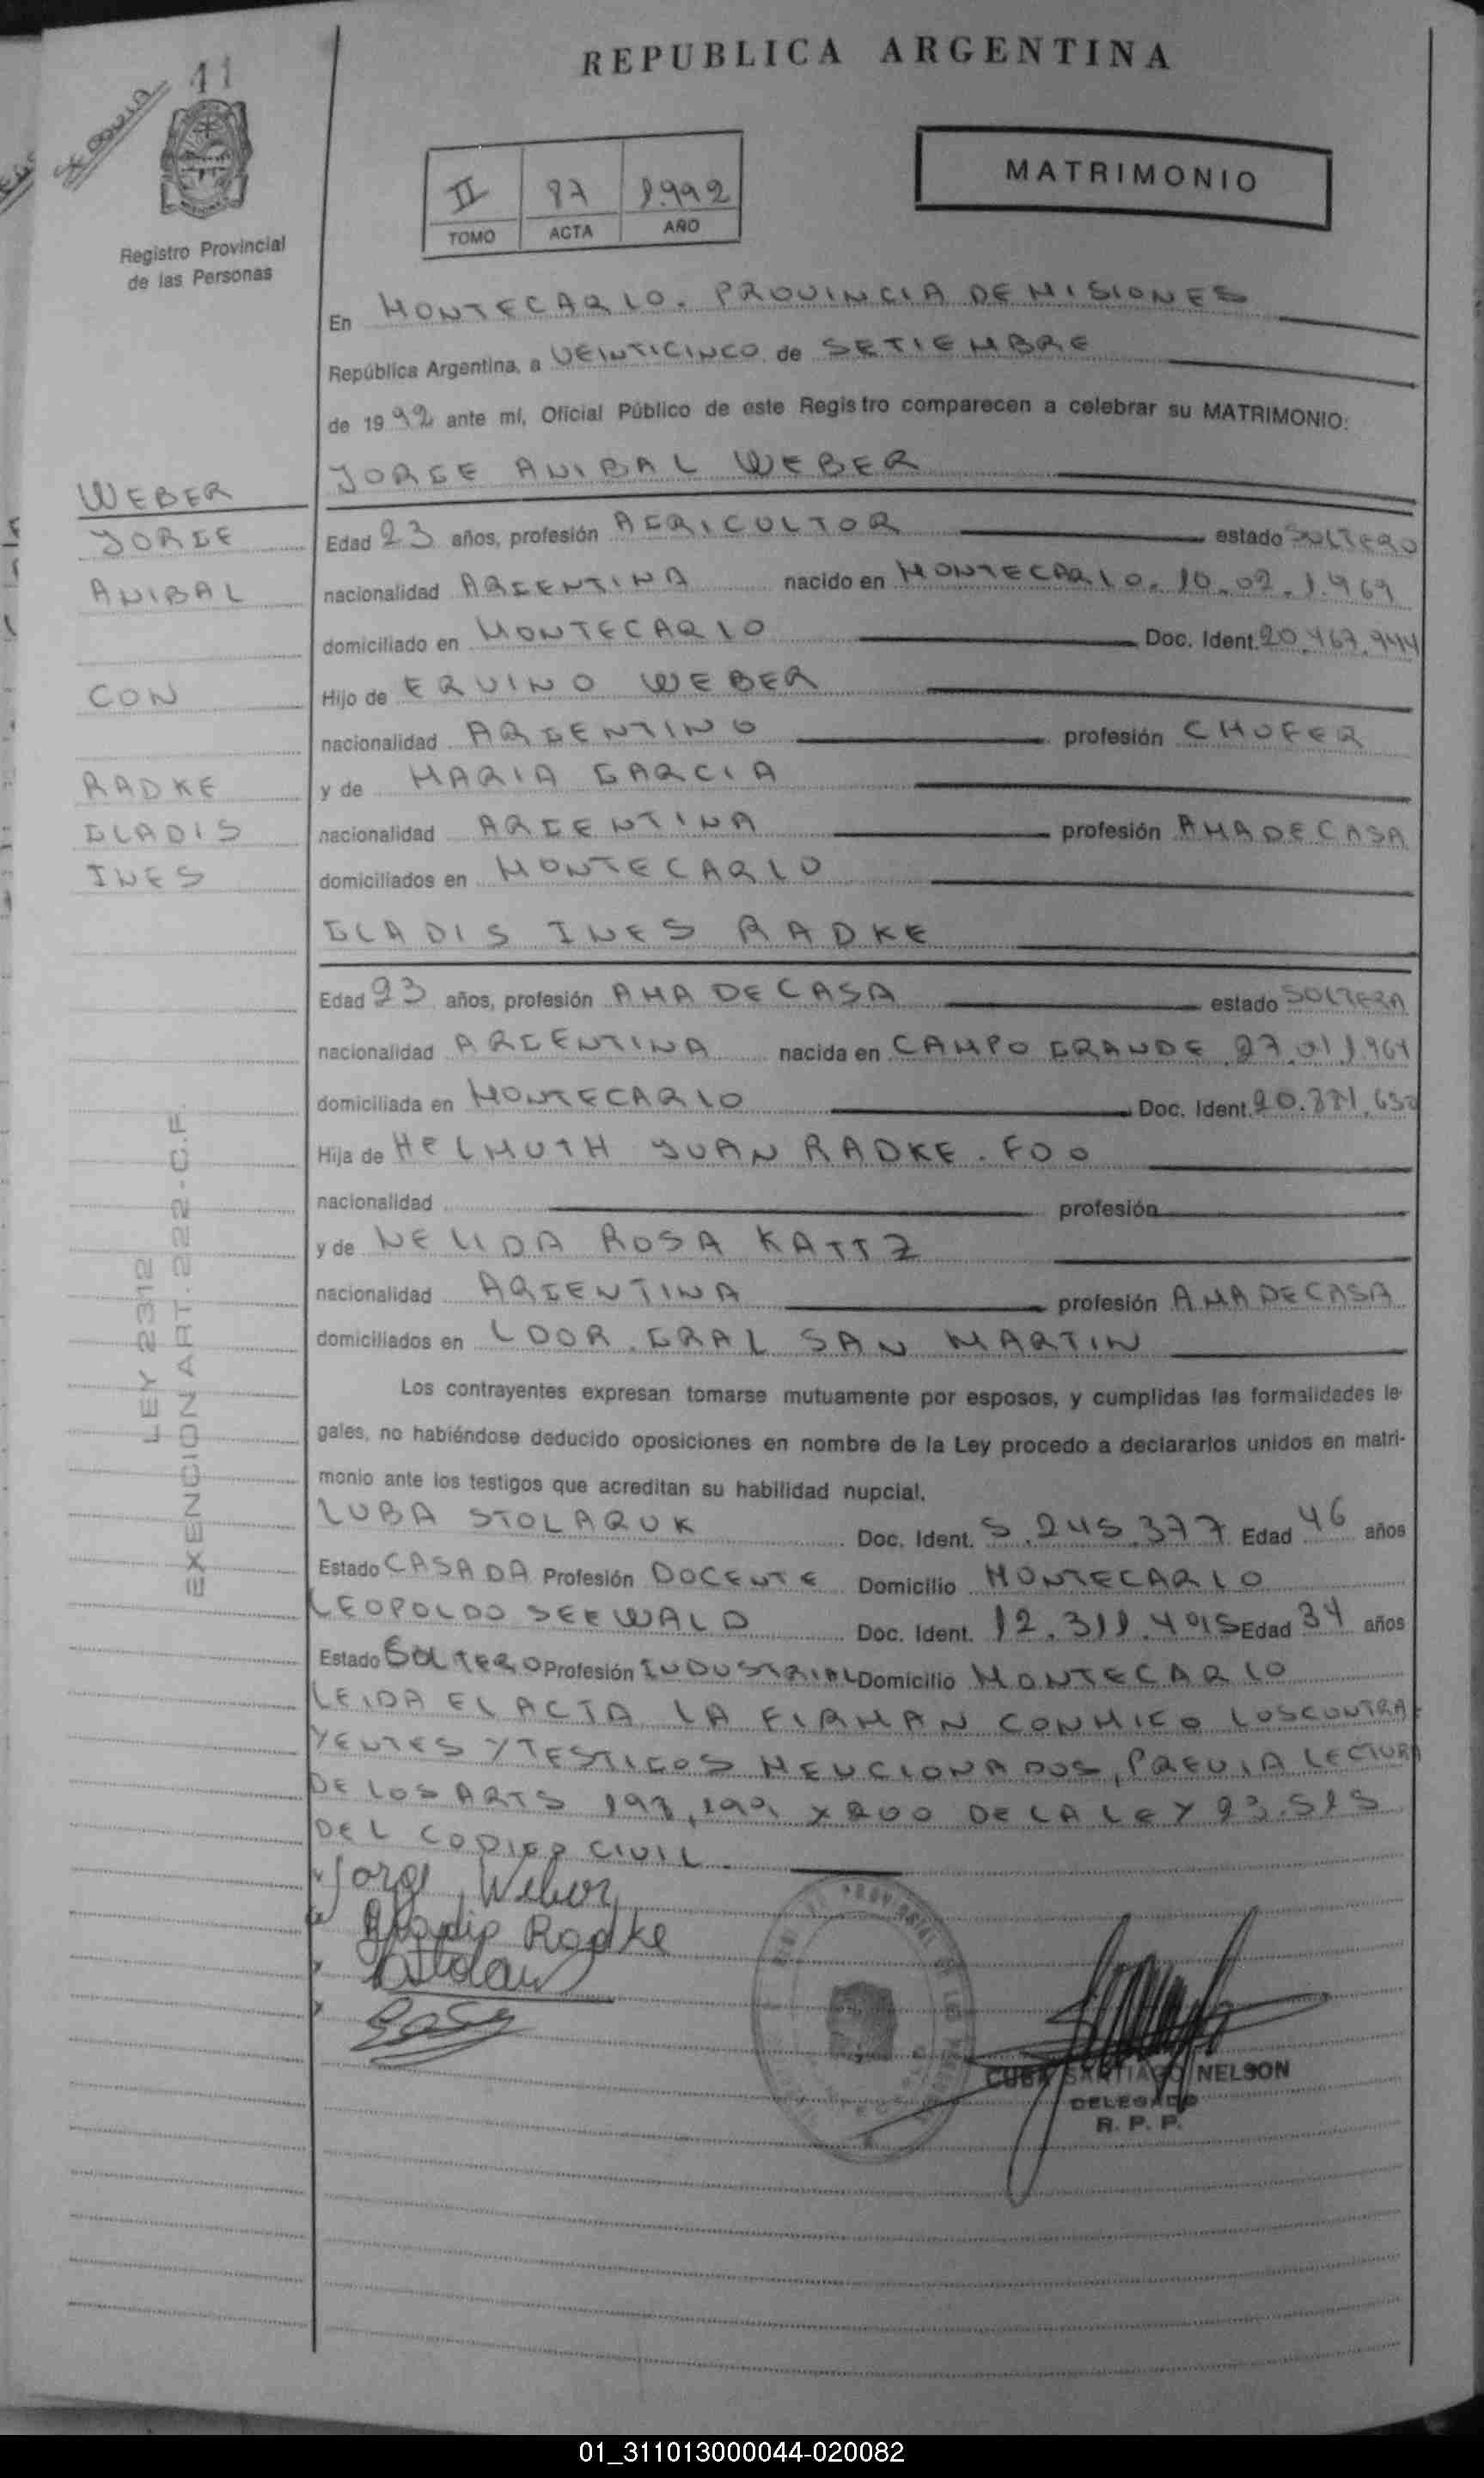 11
REPUBLICA ARGENTINA
MATRIMONIO
II 87 1.992
TOMO ACTA AÑO
Registro Provincial
de las Personas
En MONTECARLO. PROVINCIA DE MISIONES
República Argentina, a VEINTICINCO de SETIEMBRE
de 1992 ante mí, Oficial Público de este Registro comparecen a celebrar su MATRIMONIO:
JORGE ANIBAL WEBER
WEBER
JORGE
ANIBAL
CON
RADKE
GLADIS
INES
Edad 23 años, profesión AGRICULTOR estado SOLTERO
nacionalidad ARGENTINA nacido en MONTECARLO. 10.02.1.969
domiciliado en MONTECARLO Doc. Ident. 20.467.944
Hijo de ERVINO WEBER
nacionalidad ARGENTINO profesión CHOFER
y de MARIA GARCIA
nacionalidad ARGENTINA profesión AMA DE CASA
domiciliados en MONTECARLO
GLADIS INES RADKE
Edad 23 años, profesión AMA DE CASA estado SOLTERA
nacionalidad ARGENTINA nacida en CAMPO GRANDE 27.01.1.969
domiciliada en MONTECARLO Doc. Ident.
Hija de HELMUTH JUAN RADKE. FDO
nacionalidad profesión
y de NELIDA ROSA KATTZ
nacionalidad ARGENTINA profesión AMA DE CASA
domiciliados en LDOR. GRAL SAN MARTIN
LEY 2312
EXENCION ART. 222 - C.F.
Los contrayentes expresan tomarse mutuamente por esposos, y cumplidas las formalidades le-
gales, no habiéndose deducido oposiciones en nombre de la Ley procedo a declararlos unidos en matri-
monio ante los testigos que acreditan su habilidad nupcial.
LUBA STOLARUK Doc. Ident. 5.245.377 Edad 46 años
Estado CASADA Profesión DOCENTE Domicilio MONTECARLO
LEOPOLDO SEEWALD Doc. Ident. 12.311.495 Edad 34 años
Estado SOLTERO Profesión INDUSTRIAL Domicilio MONTECARLO
LEIDA EL ACTA LA FIRMAN CONMIGO LOS CONTRA-
YENTES Y TESTIGOS MENCIONADOS, PREVIA LECTURA
DE LOS ARTS 198, 199 Y 200 DE LA LEY 23.515
DEL CODIGO CIVIL.
Jorge Weber
Gladis Radke
CUBA SANTIAGO NELSON
DELEGADO
R. P. P.
01_311013000044-020082